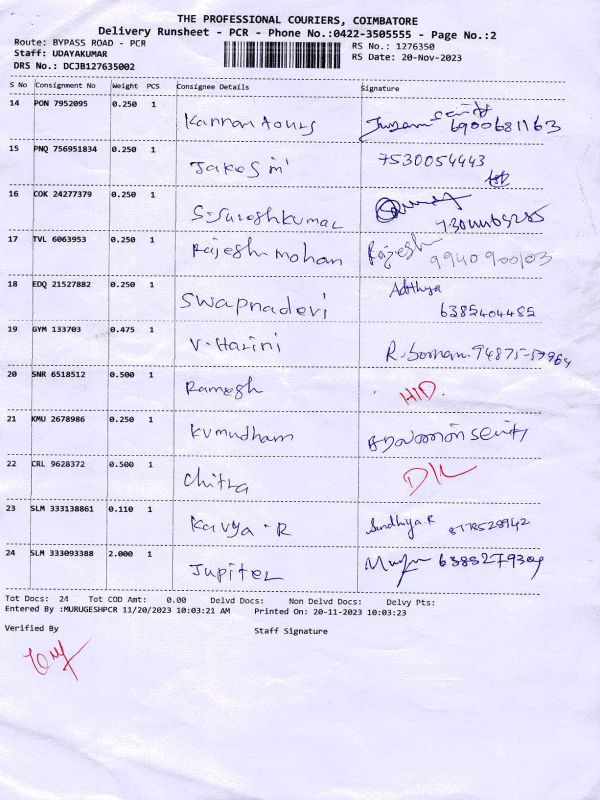 THE PROFESSIONAL COURIERS, COIMBATORE
Delivery Runsheet - PCR - Phone No.:0422-3505555 - Page No.:2
Route: BYPASS ROAD - PCR RS No.: 1276350
Staff: UDAYAKUMAR RS Date: 20-Nov-2023
DRS No.: DCJB127635002
S No Consignment No Weight PCS Consignee Details Signature
14 PON 7952095 0.250 1
Kannan tours 6900681163
15 PNQ 756951834 0.250 1
7530054443
16 COK 24277379 0.250 1
S. Sureshkumar
17 TVL 6063953 0.250 1
Rajesh mohan Rajesh
18 EDQ 21527882 0.250 1 Adithya
Swapnadevi 6385404485
19 GYM 133703 0.475 1
V. Harini
20 SNR 6518512 0.500 1
Ramesh HID.
21 KMU 2678986 0.250 1
Kumudham
22 CRL 9628372 0.500 1
Chitra D/L
23 SLM 333138861 0.110 1
Kavya - R Sandhiya.R
24 SLM 333093388 2.000 1
Jupiter
Tot Docs: 24 Tot COD Amt: 0.00 Delvd Docs: Non Delvd Docs: Delvy Pts:
Entered By :MURUGESHPCR 11/20/2023 10:03:21 AM Printed On: 20-11-2023 10:03:23
Verified By Staff Signature